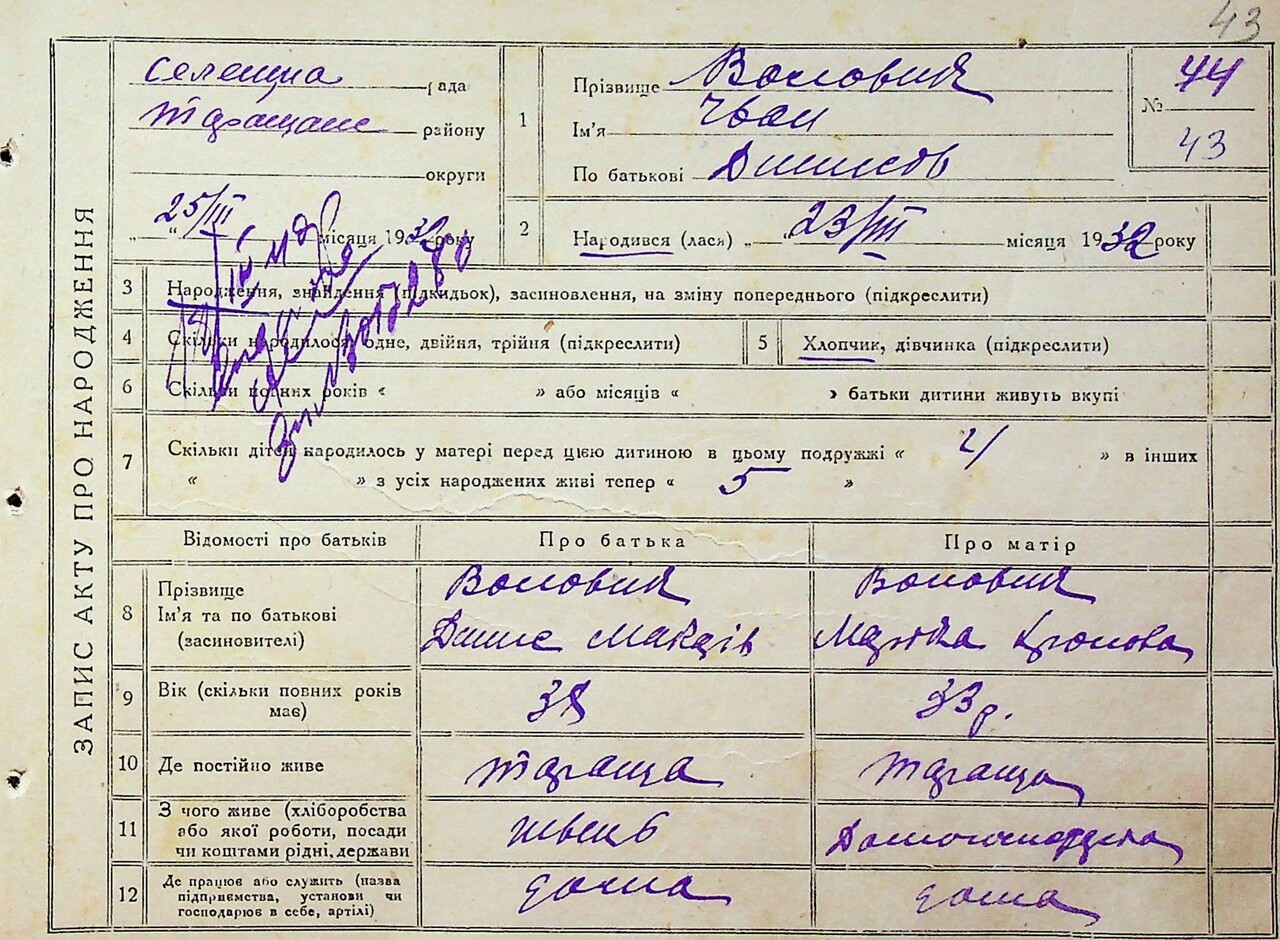 43
ЗАПИС АКТУ ПРО НАРОДЖЕННЯ
Селещна рада
Таращанс району
округи
„25/III" місяця 1932 року
1
Прізвище Воловик
Ім'я Іван
По батькові Денисов
№ 44
43
2
Народився (лася) „ 23/III місяця 1932 року
3 Народження, знайдення (підкидьок), засиновлення, на зміну попереднього (підкреслити)
4 Скільки народилося одне, двійня, трійня (підкреслити)
5 Хлопчик, дівчинка (підкреслити)
6 Скільки повних років « » або місяців « » батьки дитини живуть вкупі
7 Скільки дітей народилось у матері перед цією дитиною в цьому подружжі « » в інших
« » з усіх народжених живі тепер « 5 »
Відомості про батьків Про батька Про матір
8 Прізвище
Ім'я та по батькові
(засиновителі)
Воловик
Денис
Воловик
9 Вік (скільки повних років
має)
38
33 р.
10 Де постійно живе Тараща Тараща
11 З чого живе (хліборобства
або якої роботи, посади
чи коштами рідні, держави
швець
12 Де працює або служить (назва
підприємства, установи чи
господарює в себе, артілі)
дома
дома